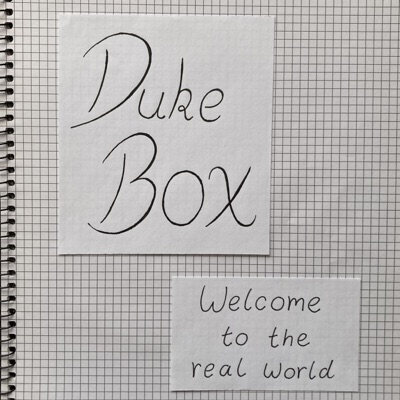 Duke
Box
Welcome
to the
real world